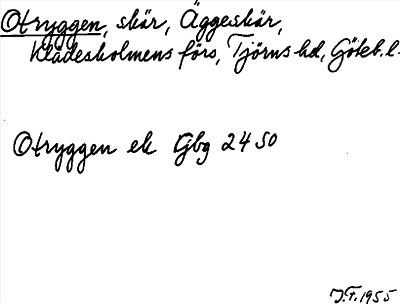 Otryggen, skär, Äggeskär,
Klädesholmens förs, Tjörns hd, Göteb. l.
Otryggen ek Gbg 24 SO
J.F. 1955